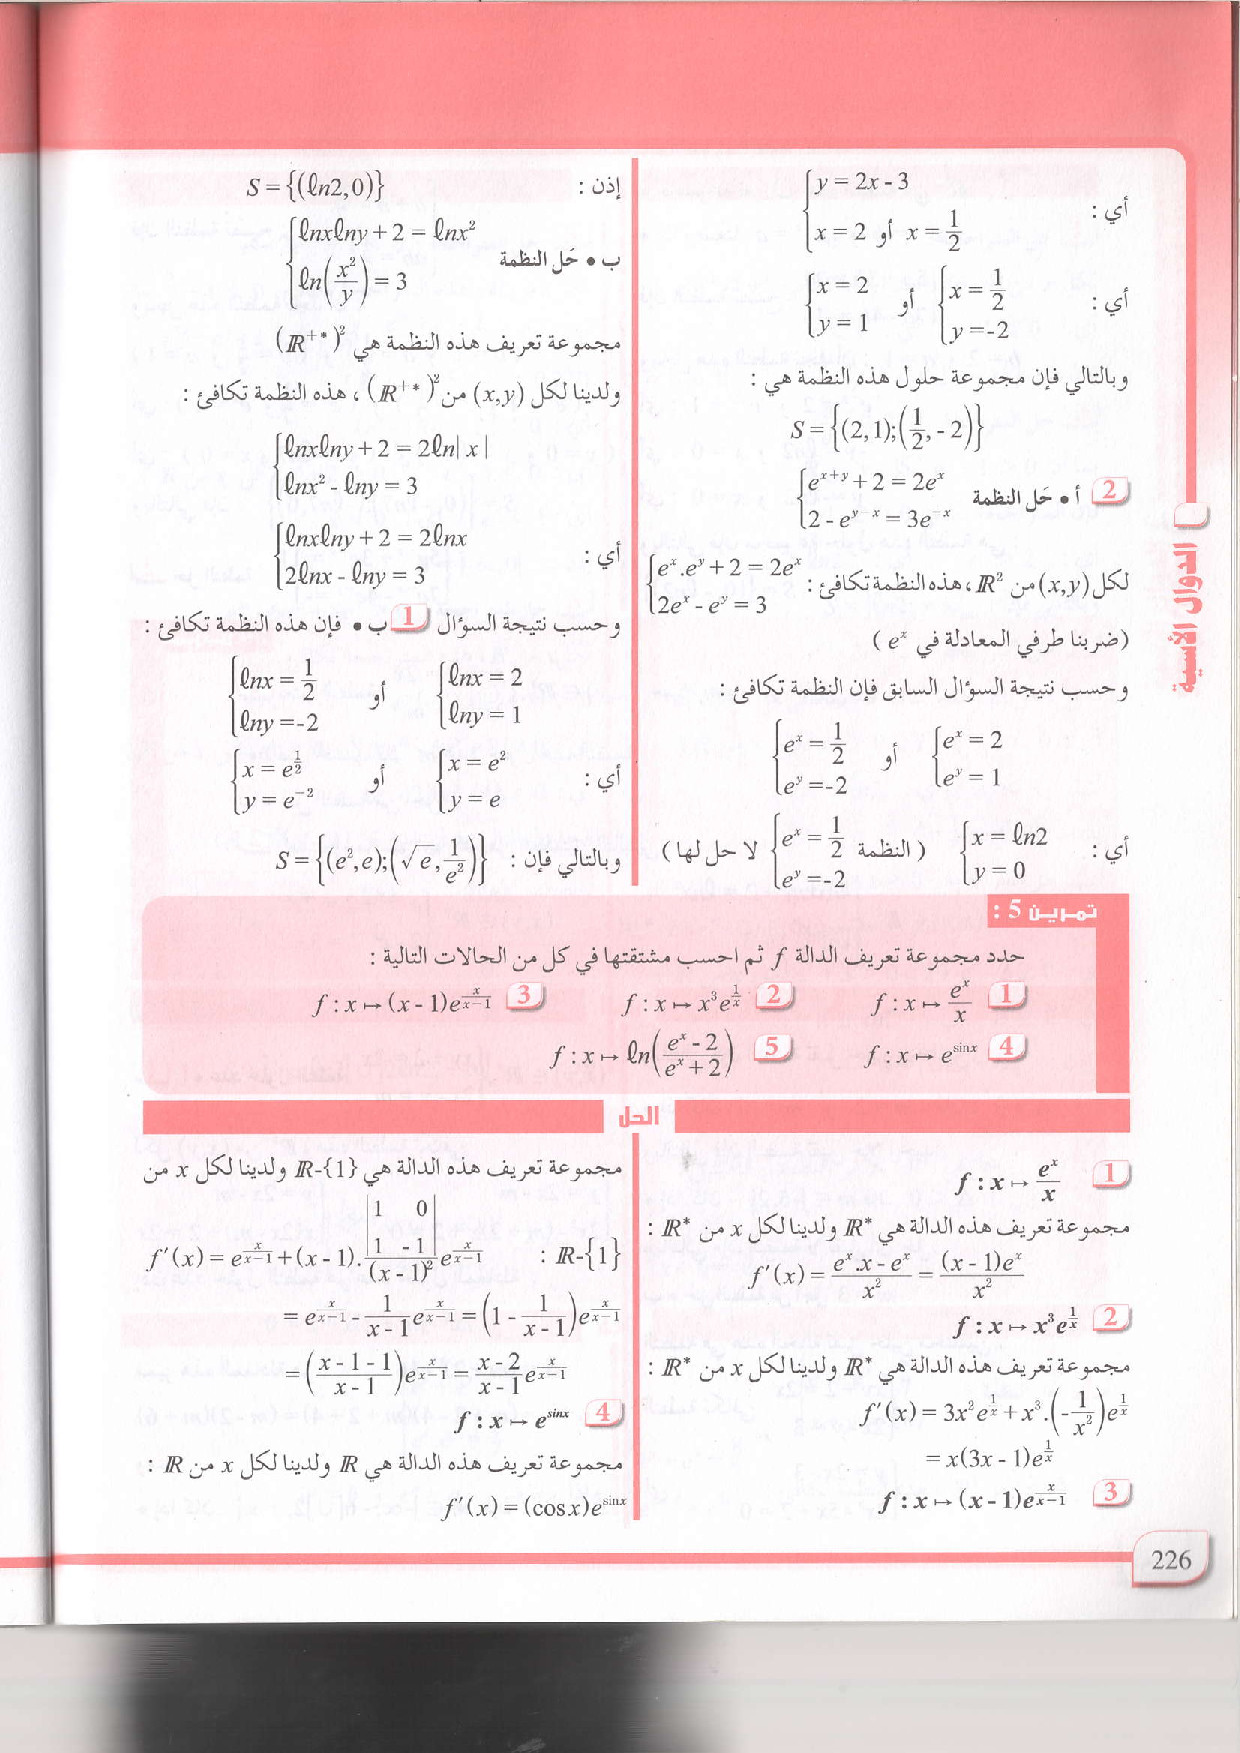 أي : { y = 2x - 3
x = 2 أو x = 1/2
أي : { x = 1/2 أو { x = 2
y = -2 y = 1
وبالتالي فإن مجموعة حلول هذه النظمة هي :
S = {(2,1);(1/2, -2)}
2 أ • حَل النظمة { e^(x+y) + 2 = 2e^x
2 - e^(y-x) = 3e^(-x)
لكل (x,y) من ℝ²، هذه النظمة تكافئ : { e^x.e^y + 2 = 2e^x
2e^x - e^y = 3
(ضربنا طرفي المعادلة في e^x)
وحسب نتيجة السؤال السابق فإن النظمة تكافئ :
{ e^x = 2 أو { e^x = 1/2
e^y = 1 e^y = -2
أي : { x = ℓn2 (النظمة { e^x = 1/2 لا حل لها)
y = 0 e^y = -2
إذن : S = {(ℓn2,0)}
ب • حَل النظمة { ℓnxℓny + 2 = ℓnx²
ℓn(x²/y) = 3
مجموعة تعريف هذه النظمة هي (ℝ^+*)²
ولدينا لكل (x,y) من (ℝ^+*)²، هذه النظمة تكافئ :
{ ℓnxℓny + 2 = 2ℓn|x|
ℓnx² - ℓny = 3
أي : { ℓnxℓny + 2 = 2ℓnx
2ℓnx - ℓny = 3
وحسب نتيجة السؤال 1 ب • فإن هذه النظمة تكافئ :
{ ℓnx = 2 أو { ℓnx = 1/2
ℓny = 1 ℓny = -2
أي : { x = e² أو { x = e^(1/2)
y = e y = e^(-2)
وبالتالي فإن : S = {(e²,e);(√e, 1/e²)}
تمرين 5 :
حدد مجموعة تعريف الدالة f ثم احسب مشتقتها في كل من الحالات التالية :
1 f : x ↦ e^x/x 2 f : x ↦ x³e^(1/x) 3 f : x ↦ (x - 1)e^(x/(x-1))
4 f : x ↦ e^(sinx) 5 f : x ↦ ℓn((e^x - 2)/(e^x + 2))
الحل
1 f : x ↦ e^x/x
مجموعة تعريف هذه الدالة هي ℝ* ولدينا لكل x من ℝ* :
f'(x) = (e^x.x - e^x)/x² = (x - 1)e^x/x²
2 f : x ↦ x³e^(1/x)
مجموعة تعريف هذه الدالة هي ℝ* ولدينا لكل x من ℝ* :
f'(x) = 3x²e^(1/x) + x³.(-1/x²)e^(1/x)
= x(3x - 1)e^(1/x)
3 f : x ↦ (x - 1)e^(x/(x-1))
مجموعة تعريف هذه الدالة هي ℝ-{1} ولدينا لكل x من
ℝ-{1} : f'(x) = e^(x/(x-1)) + (x - 1).(|1 0; 1 -1|/(x - 1)²)e^(x/(x-1))
= e^(x/(x-1)) - (1/(x - 1))e^(x/(x-1)) = (1 - 1/(x - 1))e^(x/(x-1))
= ((x - 1 - 1)/(x - 1))e^(x/(x-1)) = ((x - 2)/(x - 1))e^(x/(x-1))
4 f : x ↦ e^(sinx)
مجموعة تعريف هذه الدالة هي ℝ ولدينا لكل x من ℝ :
f'(x) = (cosx)e^(sinx)
الدوال الأسية
226